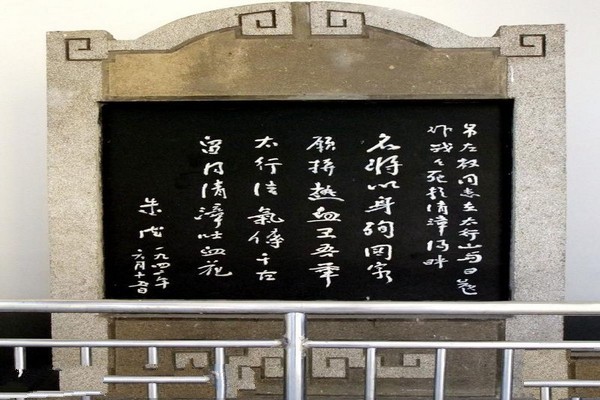 吊左权同志在太行山与日寇
作战々死於清漳河畔
名将以身殉国家
願拚熱血卫吾華
太行浩氣傳千古
留得清漳吐血花
朱德 一九四二年
六月十五日